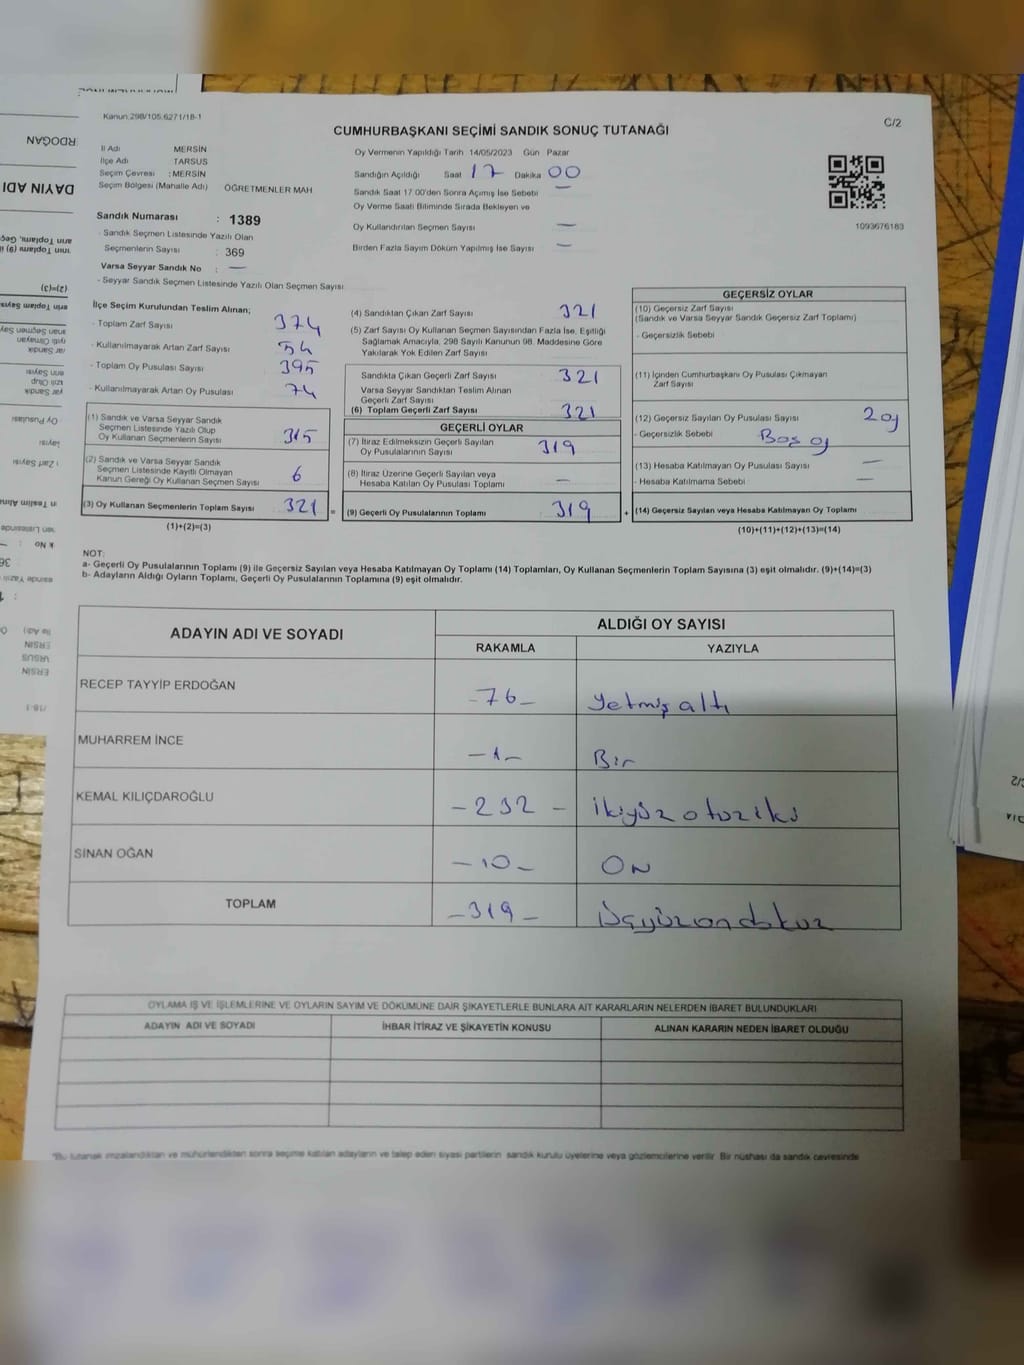 Kanun.298/105.6271/18-1
C/2
CUMHURBAŞKANI SEÇİMİ SANDIK SONUÇ TUTANAĞI
İl Adı MERSİN
İlçe Adı TARSUS
Seçim Çevresi : MERSİN
Seçim Bölgesi (Mahalle Adı) ÖĞRETMENLER MAH
Sandık Numarası : 1389
- Sandık Seçmen Listesinde Yazılı Olan
Seçmenlerin Sayısı : 369
Varsa Seyyar Sandık No : —
- Seyyar Sandık Seçmen Listesinde Yazılı Olan Seçmen Sayısı
Oy Vermenin Yapıldığı Tarih 14/05/2023 Gün Pazar
Sandığın Açıldığı Saat 17 Dakika 00
Sandık Saat 17:00'den Sonra Açımış İse Sebebi —
Oy Verme Saati Bitiminde Sırada Bekleyen ve
Oy Kullandırılan Seçmen Sayısı —
Birden Fazla Sayım Döküm Yapılmış İse Sayısı —
1093676183
İlçe Seçim Kurulundan Teslim Alınan;
- Toplam Zarf Sayısı 374
- Kullanılmayarak Artan Zarf Sayısı 54
- Toplam Oy Pusulası Sayısı 395
- Kullanılmayarak Artan Oy Pusulası 74
(1) Sandık ve Varsa Seyyar Sandık
Seçmen Listesinde Yazılı Olup
Oy Kullanan Seçmenlerin Sayısı 315
(2) Sandık ve Varsa Seyyar Sandık
Seçmen Listesinde Kayıtlı Olmayan
Kanun Gereği Oy Kullanan Seçmen Sayısı 6
(3) Oy Kullanan Seçmenlerin Toplam Sayısı 321 =
(1)+(2)=(3)
(4) Sandıktan Çıkan Zarf Sayısı 321
(5) Zarf Sayısı Oy Kullanan Seçmen Sayısından Fazla İse, Eşitliği
Sağlamak Amacıyla, 298 Sayılı Kanunun 98. Maddesine Göre
Yakılarak Yok Edilen Zarf Sayısı
Sandıkta Çıkan Geçerli Zarf Sayısı 321
Varsa Seyyar Sandıktan Teslim Alınan
Geçerli Zarf Sayısı
(6) Toplam Geçerli Zarf Sayısı 321
GEÇERLİ OYLAR
(7) İtiraz Edilmeksizin Geçerli Sayılan
Oy Pusulalarının Sayısı 319
(8) İtiraz Üzerine Geçerli Sayılan veya
Hesaba Katılan Oy Pusulası Toplamı —
(9) Geçerli Oy Pusulalarının Toplamı 319 +
GEÇERSİZ OYLAR
(10) Geçersiz Zarf Sayısı
(Sandık ve Varsa Seyyar Sandık Geçersiz Zarf Toplamı)
- Geçersizlik Sebebi
(11) İçinden Cumhurbaşkanı Oy Pusulası Çıkmayan
Zarf Sayısı
(12) Geçersiz Sayılan Oy Pusulası Sayısı 2 oy
- Geçersizlik Sebebi Boş oy
(13) Hesaba Katılmayan Oy Pusulası Sayısı —
- Hesaba Katılmama Sebebi —
(14) Geçersiz Sayılan veya Hesaba Katılmayan Oy Toplamı
(10)+(11)+(12)+(13)=(14)
NOT:
a- Geçerli Oy Pusulalarının Toplamı (9) ile Geçersiz Sayılan veya Hesaba Katılmayan Oy Toplamı (14) Toplamları, Oy Kullanan Seçmenlerin Toplam Sayısına (3) eşit olmalıdır. (9)+(14)=(3)
b- Adayların Aldığı Oyların Toplamı, Geçerli Oy Pusulalarının Toplamına (9) eşit olmalıdır.
ADAYIN ADI VE SOYADI
ALDIĞI OY SAYISI
RAKAMLA YAZIYLA
RECEP TAYYİP ERDOĞAN -76- Yetmiş altı
MUHARREM İNCE -1- Bir
KEMAL KILIÇDAROĞLU -232- ikiyüz otuziki
SİNAN OĞAN -10- ON
TOPLAM -319- Üçyüzondokuz
OYLAMA İŞ VE İŞLEMLERİNE VE OYLARIN SAYIM VE DÖKÜMÜNE DAİR ŞİKAYETLERLE BUNLARA AİT KARARLARIN NELERDEN İBARET BULUNDUKLARI
ADAYIN ADI VE SOYADI İHBAR İTİRAZ VE ŞİKAYETİN KONUSU ALINAN KARARIN NEDEN İBARET OLDUĞU
*Bu tutanak imzalandıktan ve mühürlendikten sonra seçime katılan adayların ve talep eden siyasi partilerin sandık kurulu üyelerine veya gözlemcilerine verilir. Bir nüshası da sandık çevresinde